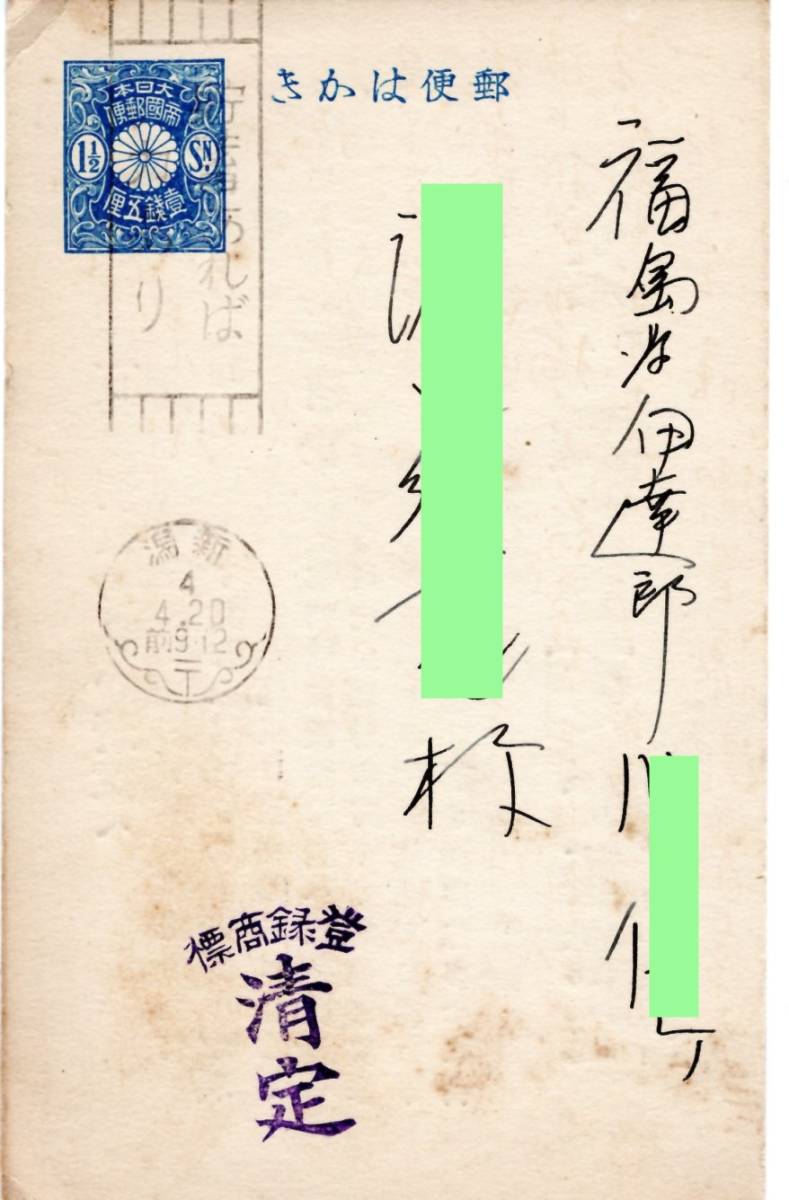 郵便はかき
大日本
帝國郵便
1½ SN.
壹錢五厘
貯蓄あれば
り
新潟
4
4.20
前9-12
〒
福島県伊達郡川
様
登録商標
清定